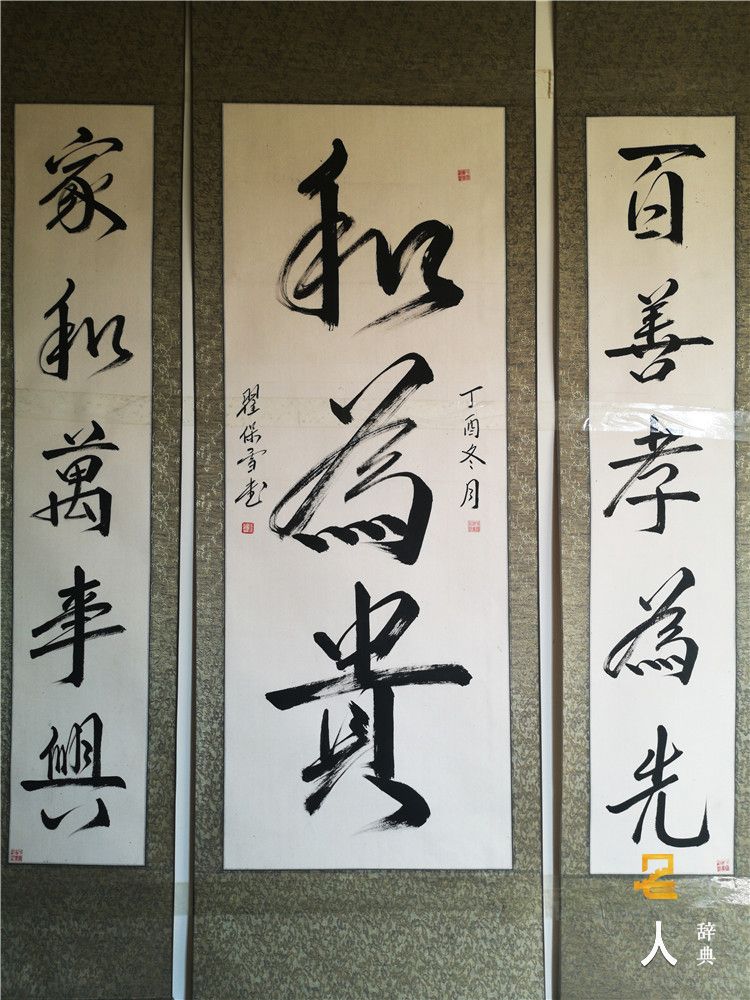 百善孝為先
和為貴
丁酉冬月
翟保雪书
家和萬事興
名人
辞典